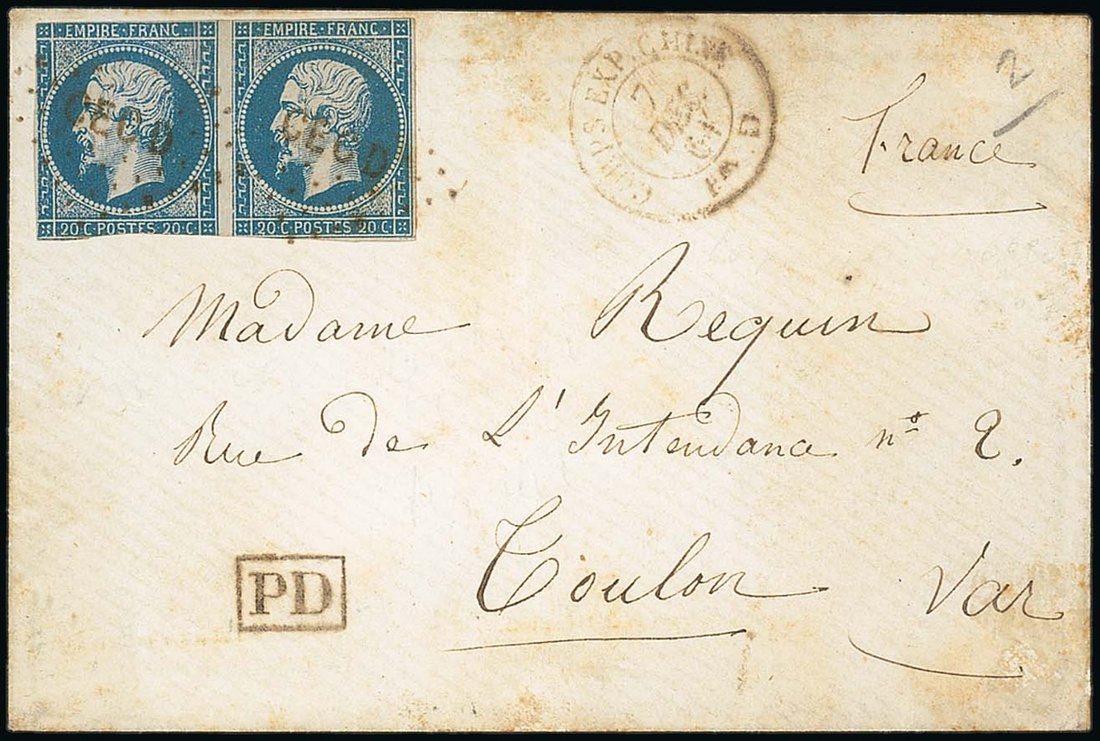 EMPIRE·FRANC EMPIRE·FRANC
CECD CECD
20·C·POSTES·20·C 20·C·POSTES·20·C
CORPS EXP. CHINE
7
DEC.
61
Bau D
2
France
Madame Requin
Rue de L'Intendance nº 2.
Toulon Var
PD